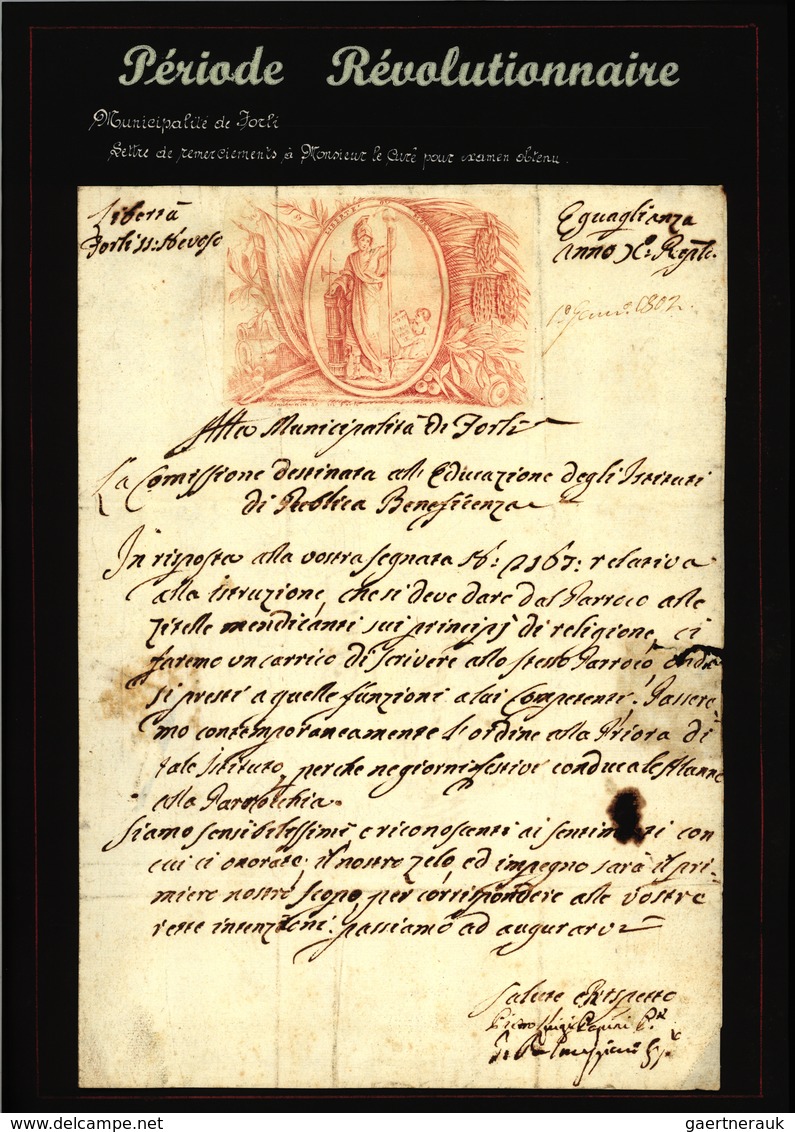 Période Révolutionnaire
Municipalité de Forli
Lettre de remerciements à Monsieur le Curé pour examen obtenu.
Libertà
Eguaglianza
Forli 11: Nevoso
Anno X.o Repb.
1.o Genn.o 1802.
Alla Municipalità di Forlì
La Comissione destinata all' Educazione degli Istituti
di Publica Beneficenza
In risposta alla vostra segnata N: 2167: relativa
alla istruzione, che si deve dare dal Parroco alle
Zitelle mendicanti sui principj di religione, ci
faremo un carrico di scrivere allo stesso Parroco, onde
si presti a quelle funzioni a lui Competenti. Passere
mo contemporaneamente l'ordine alla Priora di
tale Istituto, perche ne giorni festivi conduca le Alunne
alla Parrocchia.
Siamo sensibilissimi, e riconoscenti ai sentimenti con
cui ci onorate; il nostro zelo, ed impegno sarà il pri-
miero nostro scopo, per corrispondere alle vostre
rette intenzioni: passiamo ad augurarvi
Salute e Rispetto
Pietro Luigi
gaertnerauk
delcampe.net